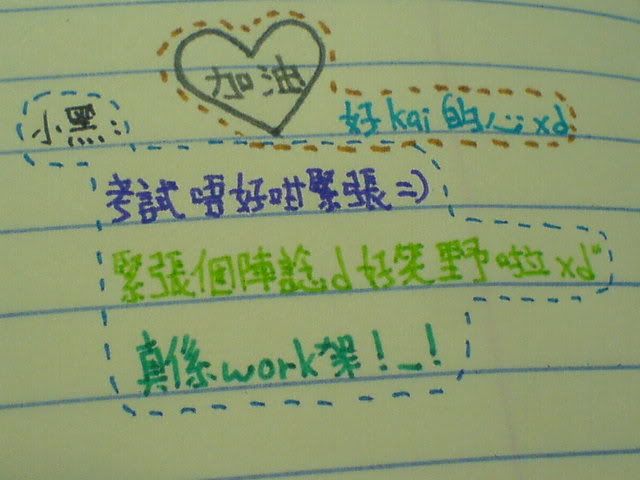 加油
好kai的心xd
小黑:
考試唔好咁緊張=)
緊張個陣諗d好笑野啦xd"
真係work架!_!